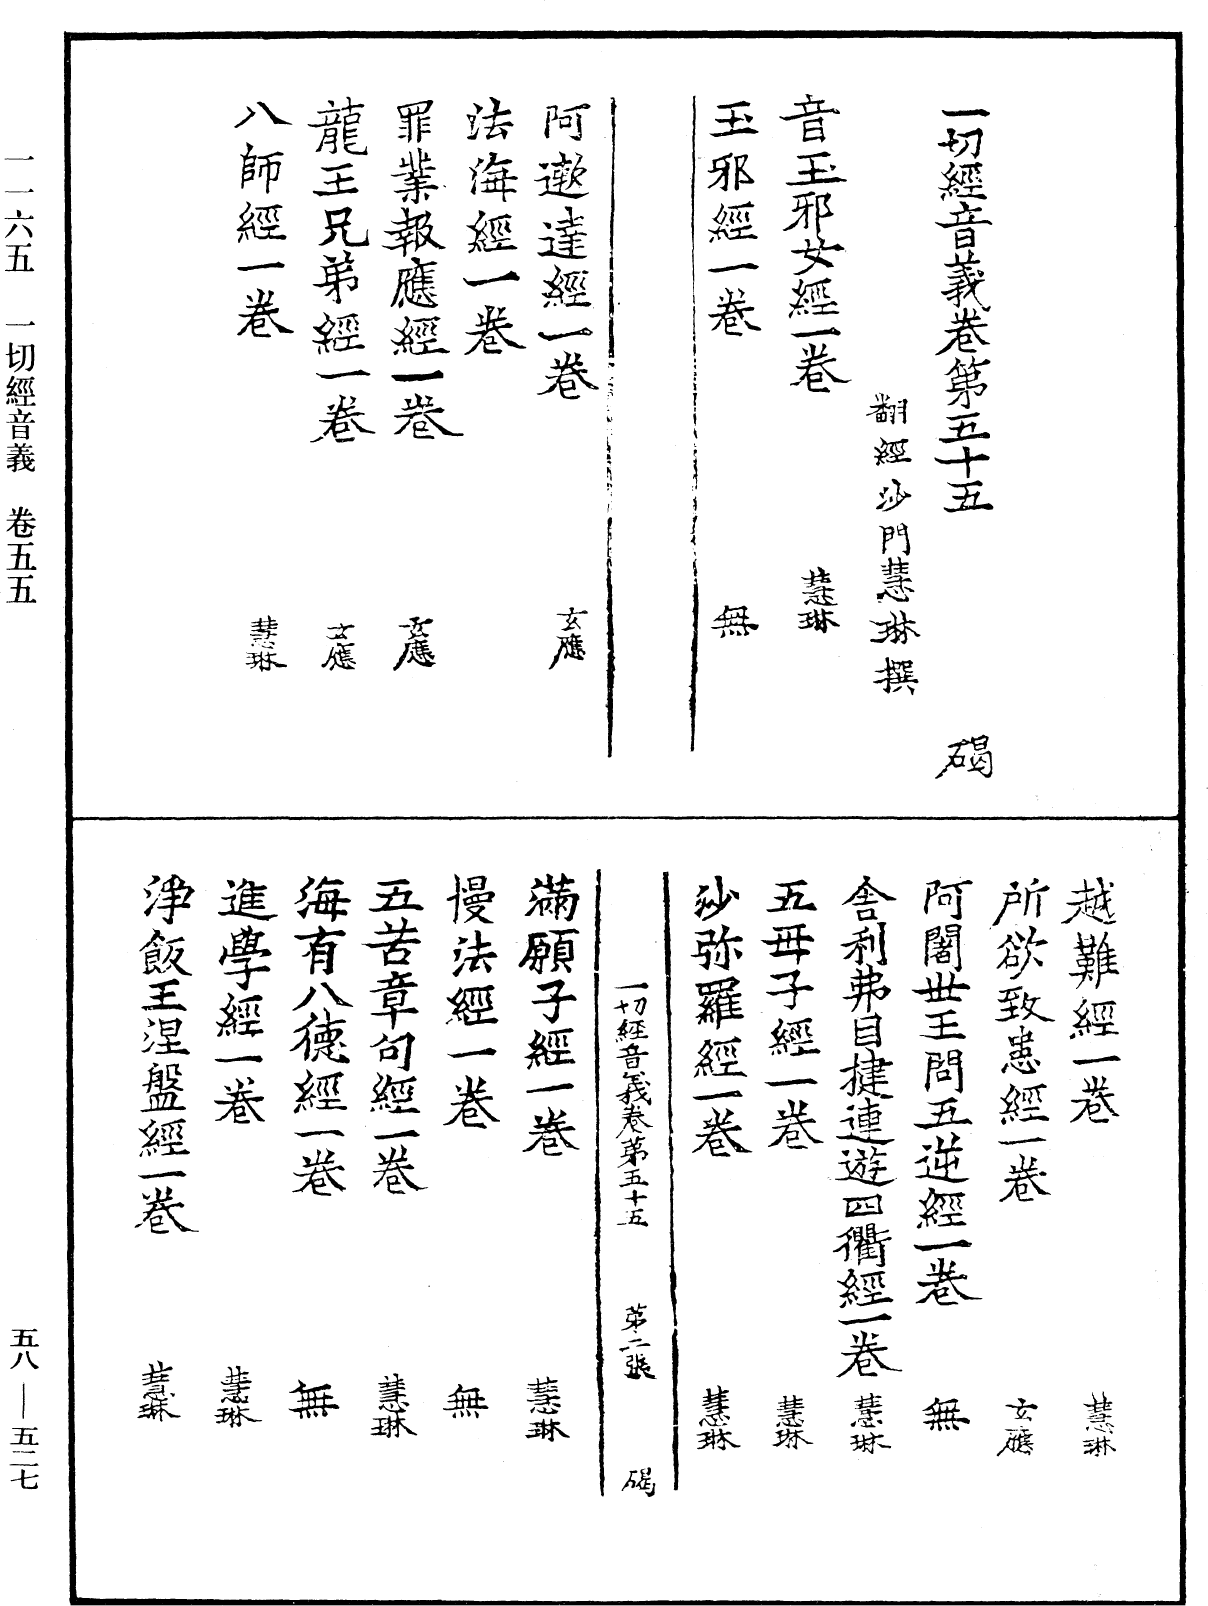 一切經音義卷第五十五 碣
翻經沙門慧琳撰
音玉邪女經一卷 慧琳
玉邪經一卷 無
阿遬達經一卷 玄應
法海經一卷
罪業報應經一卷 玄應
龍王兄弟經一卷 玄應
八師經一卷 慧琳
越難經一卷 慧琳
所欲致患經一卷 玄應
阿闍世王問五逆經一卷 無
舍利弗目揵連遊四衢經一卷 慧琳
五母子經一卷 慧琳
沙弥羅經一卷 慧琳
一切經音義卷第五十五 第二張 碣
滿願子經一卷 慧琳
慢法經一卷 無
五苦章句經一卷 慧琳
海有八德經一卷 無
進學經一卷 慧琳
淨飯王涅盤經一卷 慧琳
一一六五 一切經音義 卷五五
五八—五二七